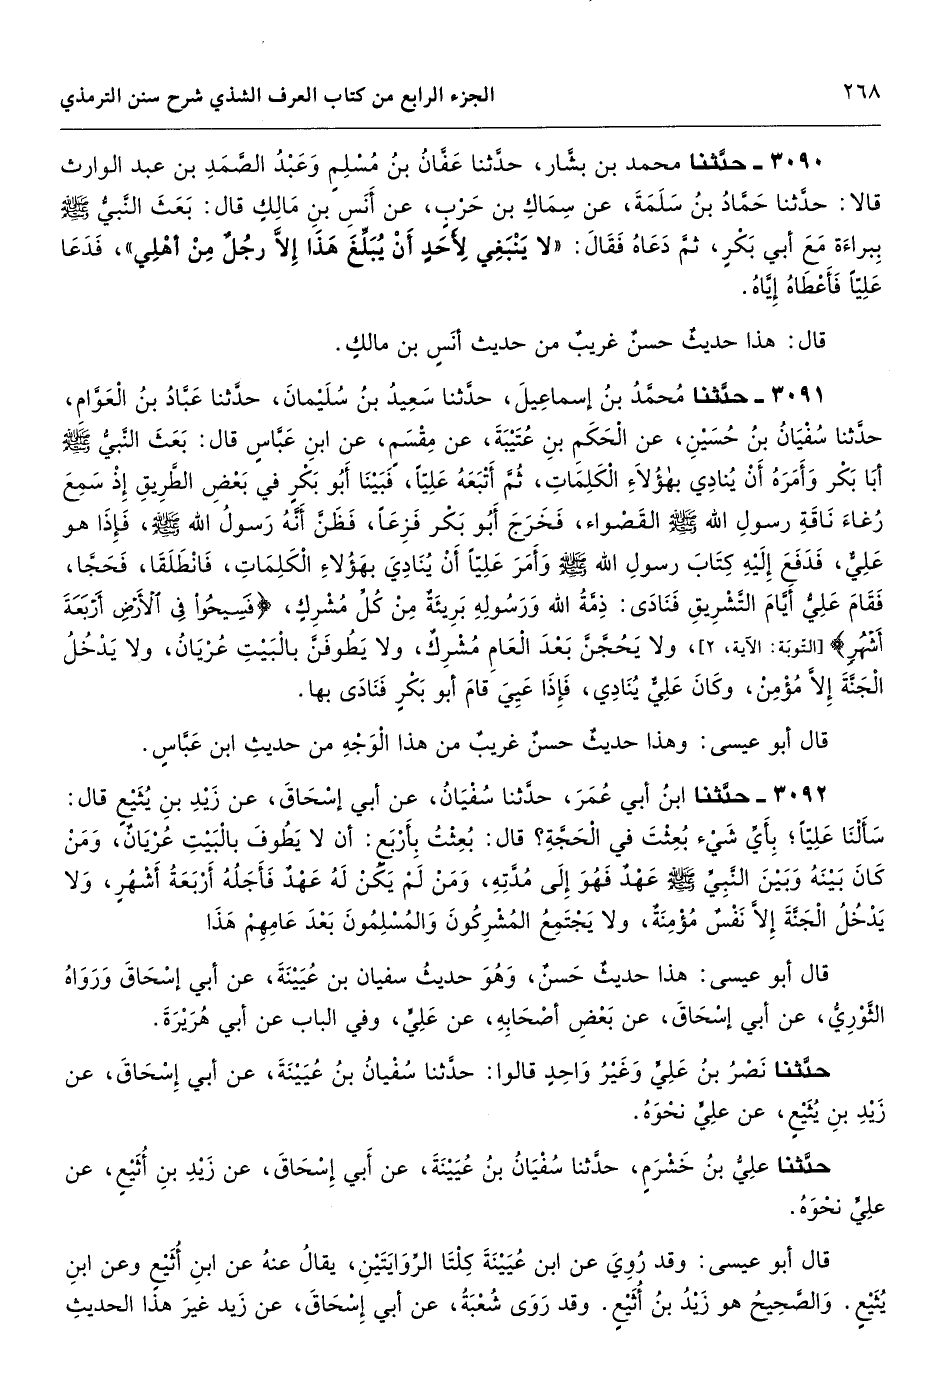 ٢٦٨
الجزء الرابع من كتاب العرف الشذي شرح سنن الترمذي
٣٠٩٠ - حدَّثنا محمد بن بشَّار، حدَّثنا عَفَّانُ بنُ مُسْلِمٍ وَعَبْدُ الصَّمَدِ بن عبد الوارث
قالا: حدَّثنا حَمَّادُ بنُ سَلَمَةَ، عن سِمَاكِ بن حَرْبٍ، عن أَنَسِ بنِ مَالِكٍ قال: بَعَثَ النَّبيُّ ﷺ
بِبراءَة مَعَ أبي بَكْرٍ، ثمَّ دَعَاهُ فَقَالَ: «لا يَنْبَغِي لِأَحَدٍ أَنْ يُبَلِّغَ هَذَا إِلاَّ رجُلٌ مِنْ أهْلِي»، فَدَعَا
عَلِيّاً فَأَعْطَاهُ إِيَّاهُ.
قال: هذا حديثٌ حسنٌ غريبٌ من حديث أنَسِ بن مالكٍ.
٣٠٩١ - حدَّثنا مُحمَّدُ بنُ إسماعِيلَ، حدَّثنا سَعِيدُ بنُ سُلَيْمانَ، حدَّثنا عَبَّادُ بنُ الْعَوَّامِ،
حدَّثنا سُفْيَانُ بنُ حُسَيْنٍ، عن الْحَكَمِ بنِ عُتَيْبَةَ، عن مِقْسَمٍ، عن ابنِ عَبَّاسٍ قال: بَعَثَ النَّبيُّ ﷺ
أبَا بَكْر وَأَمَرَهُ أَنْ يُنَادِي بِهَؤُلاَءِ الْكَلِمَاتِ، ثُمَّ أَتْبَعَهُ عَلِيّاً، فَبَيْنَا أَبُو بَكْرٍ في بَعْضِ الطَّرِيقِ إِذْ سَمِعَ
رُغاءَ نَاقَةِ رسولِ الله ﷺ القَصْواء، فَخَرَجَ أَبُو بَكْر فَزِعَاً، فَظَنَّ أَنَّهُ رَسولُ الله ﷺ، فَإِذَا هو
عَلِيٌّ، فَدَفَعَ إِلَيْهِ كِتَابَ رسولِ الله ﷺ وَأَمَرَ عَلِيّاً أَنْ يُنَادِيَ بِهَؤُلاءِ الْكَلِمَاتِ، فَانْطَلَقَا، فَحَجَّا،
فَقَامَ عَلِيُّ أَيَّامَ التَّشْرِيقِ فَنَادَى: ذِمَّةُ الله وَرَسُولِهِ بَرِيئَةٌ مِنْ كُلِّ مُشْرِكٍ، ﴿فَسِيحُوا۟ فِى ٱلْأَرْضِ أَرْبَعَةَ
أَشْهُرٍ﴾ [التّوبَة: الآية، ٢]، ولا يَحُجَّنَّ بَعْدَ الْعَامِ مُشْرِكٌ، ولا يَطُوفَنَّ بالْبَيْتِ عُرْيَانٌ، ولا يَدْخُلُ
الْجَنَّةَ إِلاَّ مُؤْمِنٌ، وكَانَ عَلِيٌّ يُنَادِي، فَإِذَا عَيِيَ قامَ أبو بَكْرٍ فَنَادَى بها.
قال أبو عيسى: وهذا حديثٌ حسنٌ غريبٌ من هذا الْوَجْهِ من حديثِ ابن عَبَّاسٍ.
٣٠٩٢ - حدَّثنا ابنُ أبي عُمَرَ، حدَّثنا سُفْيَانُ، عن أبي إسْحَاقَ، عن زَيْدِ بنِ يُثَيْعٍ قال:
سَأَلْنَا عَلِيّاً؛ بِأَيِّ شَيْء بُعِثْتَ في الْحَجَّةِ؟ قال: بُعِثْتُ بِأَرْبَعٍ: أن لا يَطُوفَ بالْبَيْتِ عُرْيَانٌ، وَمَنْ
كَانَ بَيْنَهُ وَبَيْنَ النَّبيِّ ﷺ عَهْدٌ فَهُوَ إِلى مُدَّتِهِ، وَمَنْ لَمْ يَكُنْ لَهُ عَهْدٌ فَأَجَلُهُ أَرْبَعَةُ أَشْهُرٍ، وَلا
يَدْخُلُ الْجَنَّةَ إلاَّ نَفْسٌ مُؤْمِنَةٌ، ولا يَجْتَمِعُ المُشْرِكُونَ وَالمُسْلِمُونَ بَعْدَ عَامِهِمْ هَذَا
قال أبو عيسى: هذا حديثٌ حَسنٌ، وَهُوَ حديثُ سفيان بن عُيَيْنَةَ، عن أبي إسْحَاقَ وَرَوَاهُ
الثَّوْرِيُّ، عن أبي إسْحَاقَ، عن بَعْضِ أصْحَابِهِ، عن عَلِيٍّ، وفي الباب عن أبي هُرَيْرَةَ.
حدَّثنا نَصْرُ بنُ عَلِيٍّ وَغَيْرُ وَاحِدٍ قالوا: حدَّثنا سُفْيانُ بنُ عُيَيْنَةَ، عن أبي إِسْحَاقَ، عن
زَيْدِ بنِ يُثَيْعٍ، عن علِيٍّ نحْوَهُ.
حدَّثنا عليُّ بنُ خَشْرَمٍ، حدَّثنا سُفْيَانُ بنُ عُيَيْنَةَ، عن أَبي إِسْحَاقَ، عن زَيْدِ بنِ أُثَيْعٍ، عن
علِيٍّ نحْوَهُ.
قال أبو عيسى: وقد رُوِيَ عن ابن عُيَيْنَةَ كِلْتَا الرِّوَايَتَيْنِ، يقالُ عنهُ عن ابنِ أُثَيْعٍ وعن ابنِ
يُثَيْعٍ. وَالصَّحِيحُ هو زَيْدُ بنُ أُثَيْعٍ. وقد رَوَى شُعْبَةُ، عن أبي إِسْحَاقَ، عن زَيد غيرَ هذَا الحديثِ